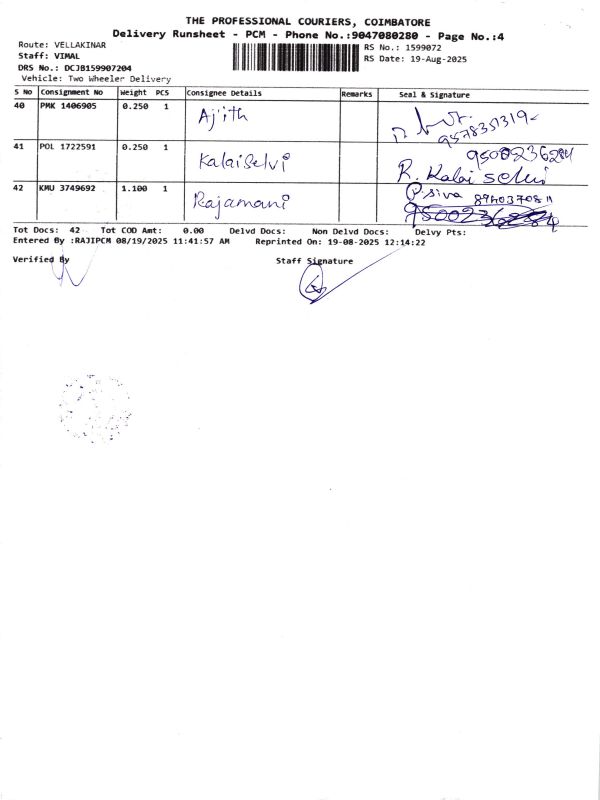 THE PROFESSIONAL COURIERS, COIMBATORE
Delivery Runsheet - PCM - Phone No.:9047080280 - Page No.:4
Route: VELLAKINAR
RS No.: 1599072
Staff: VIMAL
RS Date: 19-Aug-2025
DRS No.: DCJB159907204
Vehicle: Two Wheeler Delivery
S No Consignment No Weight PCS Consignee Details Remarks Seal & Signature
40 PMK 1406905 0.250 1 Ajith
9578351319
41 POL 1722591 0.250 1 Kalaiselvi
R. Kalai selvi
42 KMU 3749692 1.100 1 Rajamani
P. siva
Tot Docs: 42 Tot COD Amt: 0.00 Delvd Docs: Non Delvd Docs: Delvy Pts:
Entered By :RAJIPCM 08/19/2025 11:41:57 AM Reprinted On: 19-08-2025 12:14:22
Verified By Staff Signature